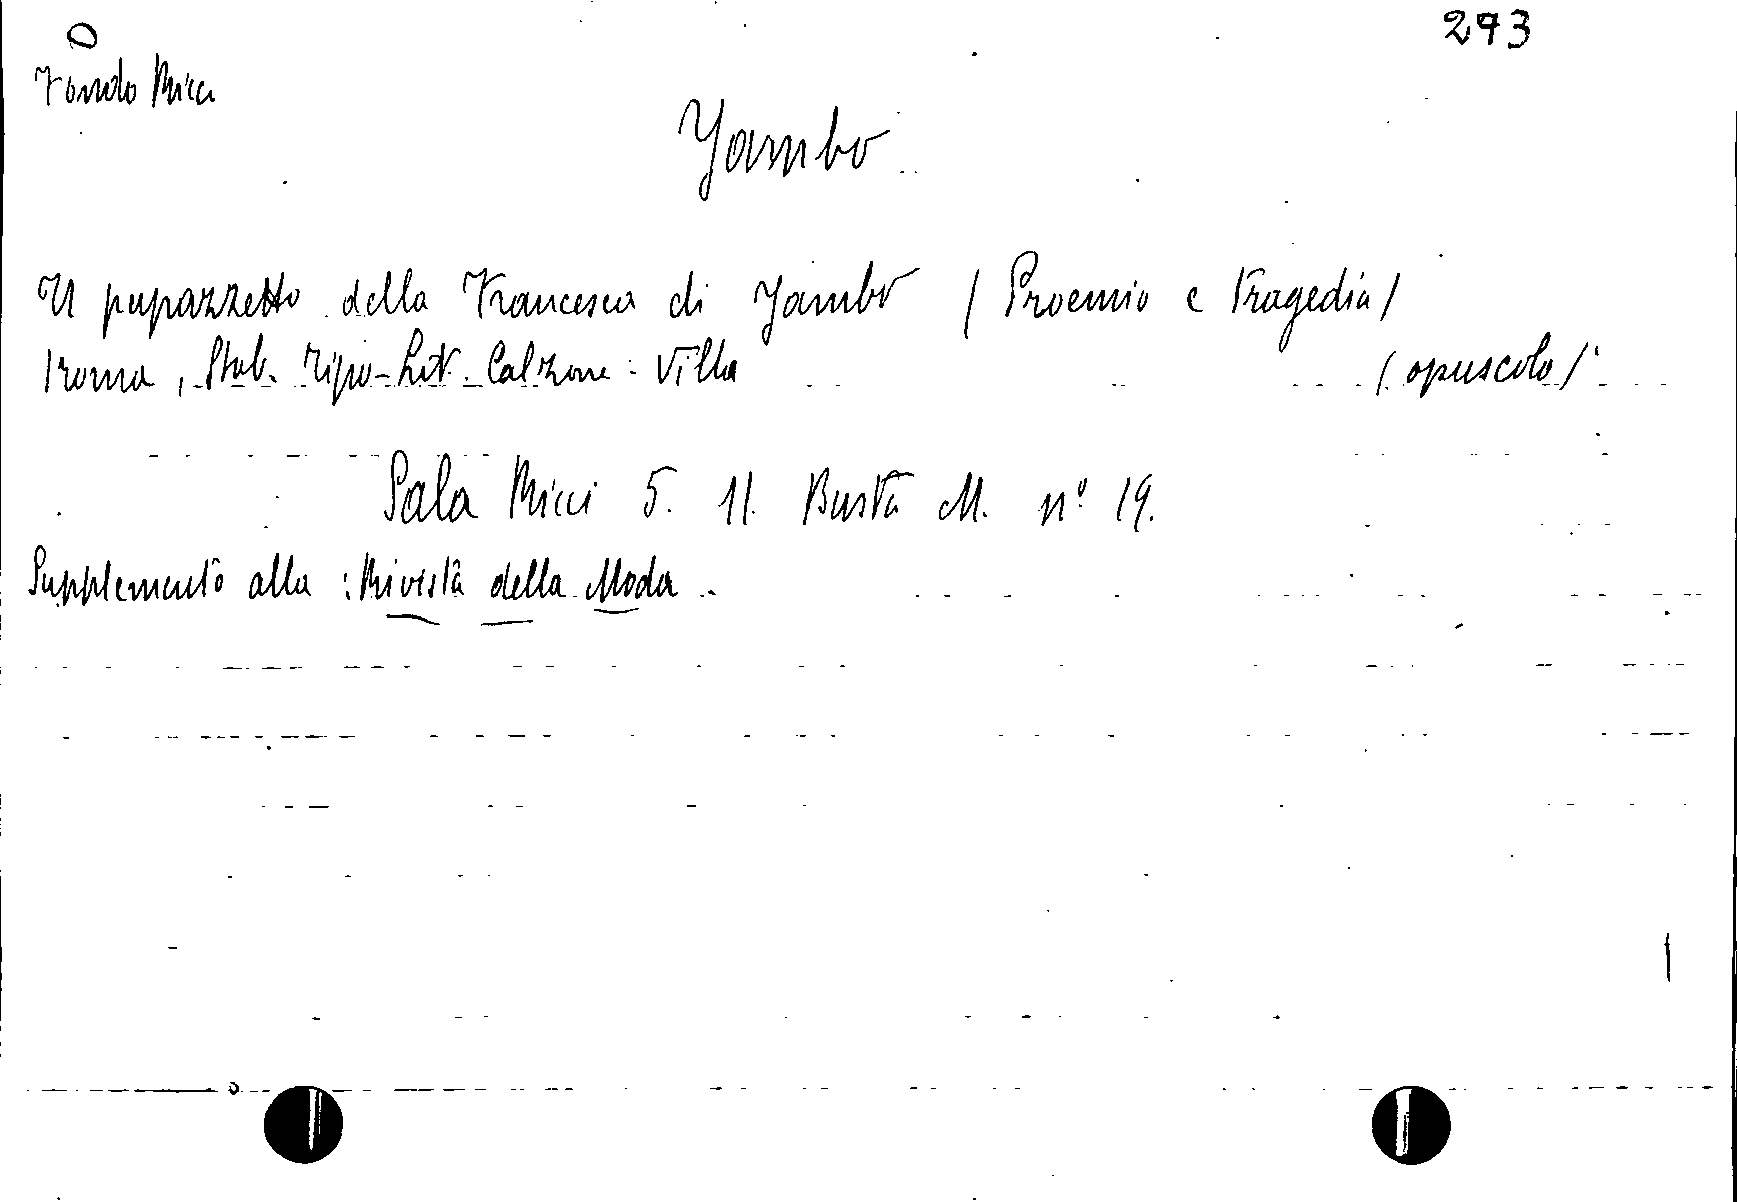 O
293
Fondo Ricci
Yambo
Il pupazzetto della Francesca di Yambo / Proemio e Tragedia /
Roma, Stab. Tipo-Lit. Calzone-Villa / opuscolo /
Sala Ricci 5. 11. Busta M. n° 19.
Supplemento alla : Rivista della Moda.